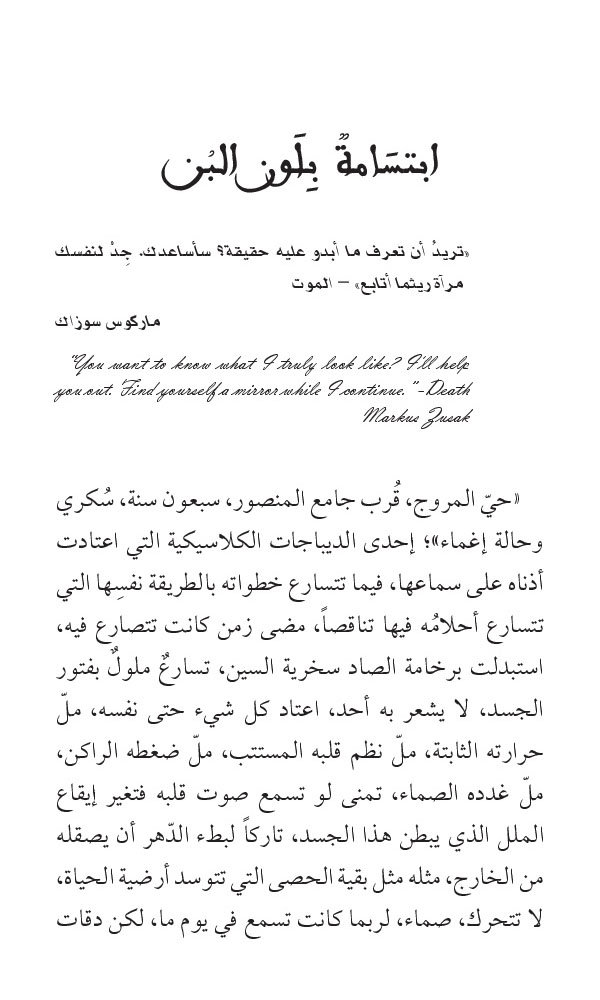 ابتسَامةٌ بِلَون البُن
«تريدُ أن تعرف ما أبدو عليه حقيقة؟ سأساعدك. جِدْ لنفسك
مرآة ريثما أتابع» – الموت
ماركوس سوزاك
"You want to know what I truly look like? I'll help
you out. Find yourself a mirror while I continue." -Death
Markus Zusak
«حيّ المروج، قُرب جامع المنصور، سبعون سنة، سُكري
وحالة إغماء»؛ إحدى الديباجات الكلاسيكية التي اعتادت
أذناه على سماعها، فيما تتسارع خطواته بالطريقة نفسِها التي
تتسارع أحلامُه فيها تناقصاً، مضى زمن كانت تتصارع فيه،
استبدلت برخامة الصاد سخرية السين، تسارعٌ ملولٌ بفتور
الجسد، لا يشعر به أحد، اعتاد كل شيء حتى نفسه، ملّ
حرارته الثابتة، ملّ نظم قلبه المستتب، ملّ ضغطه الراكن،
ملّ غدده الصماء، تمنى لو تسمع صوت قلبه فتغير إيقاع
الملل الذي يبطن هذا الجسد، تاركاً لبطء الدّهر أن يصقله
من الخارج، مثله مثل بقية الحصى التي تتوسد أرضية الحياة،
لا تتحرك، صماء، لربما كانت تسمع في يوم ما، لكن دقات